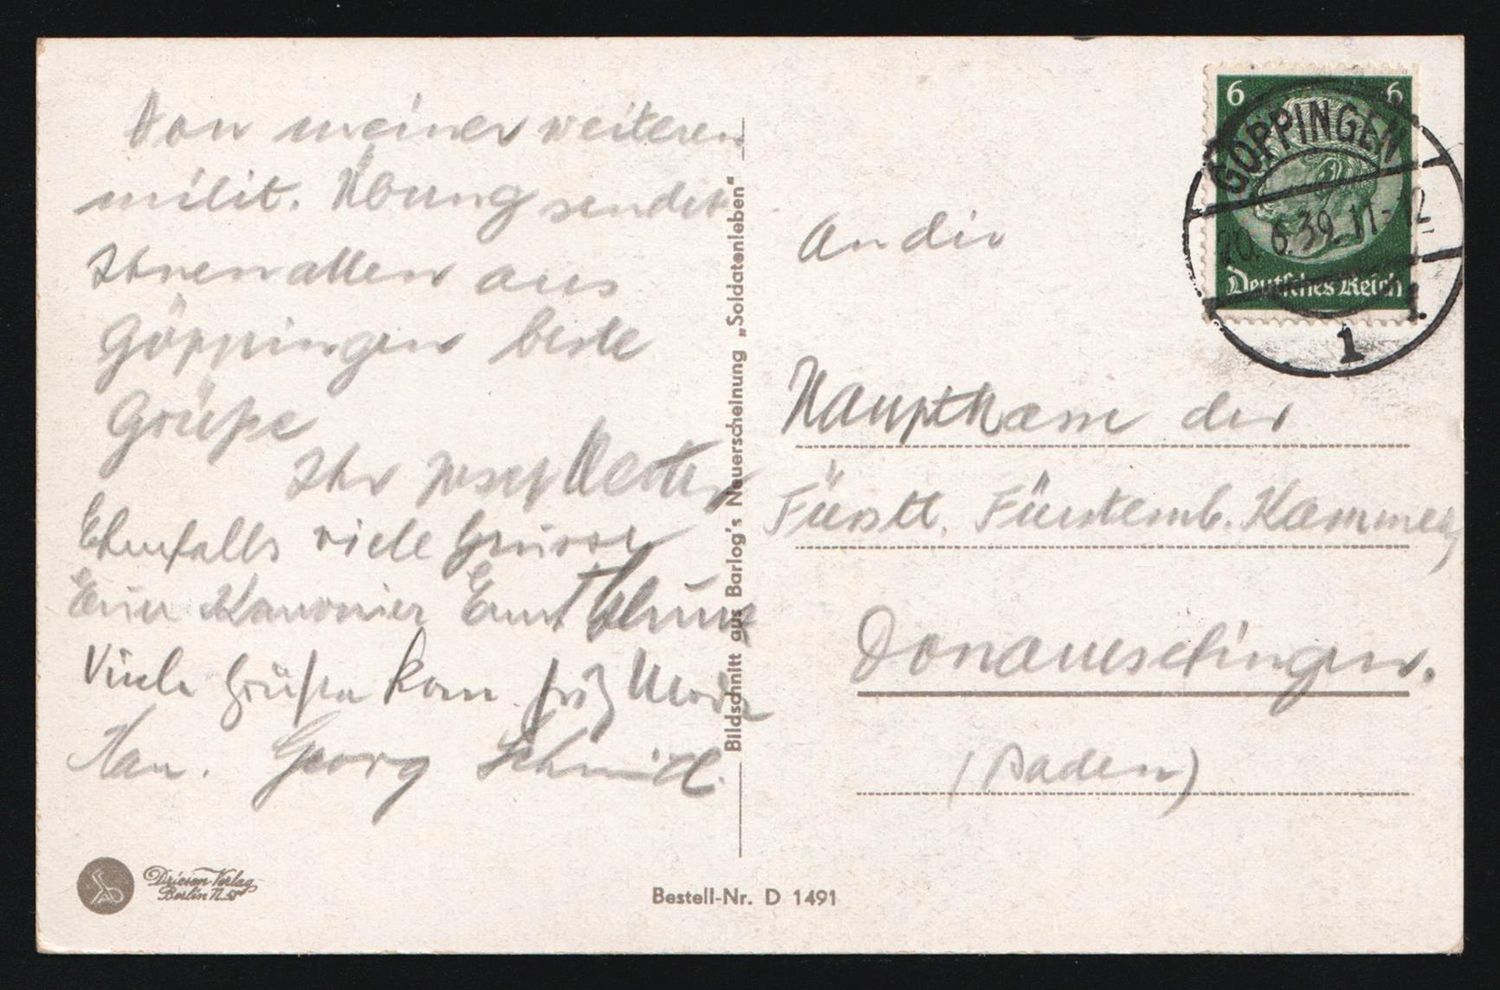 Von meiner weiteren
milit. Übung sendet
Ihnen allen aus
Göppingen beste
Grüße
Ihr Josef
Ebenfalls viele Grüsse
Kanonier Ernst
Viele Grüße Kan. Fritz
Kan. Georg Schmid.
Bildschnitt aus Barlog's Neuerscheinung „Soldatenleben"
Driesen Verlag
Berlin N.
Bestell-Nr. D 1491
6 6
Deutsches Reich
GÖPPINGEN
20.6.39.11-12
1
An die
Hauptkasse der
Fürstl. Fürstemb. Kammer
Donaueschingen.
(Baden)